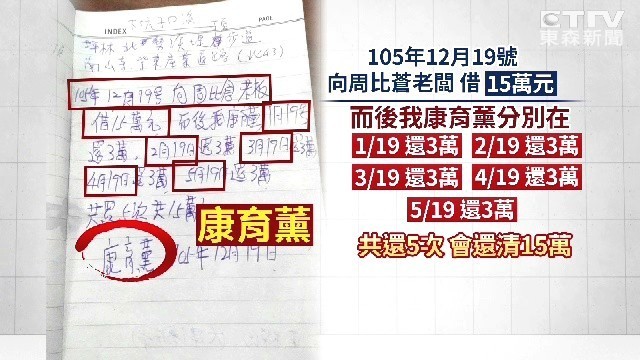 INDEX
PAGE
105年12月19号 向周比倉老板
借15万元 而後我康育薰 1月19号
還3萬，2月19日还3萬 3月19日还3萬
4月19日还3萬 5月19日还3萬
共還5次 共15萬
康育薰 105年12月19日
康育薰
ETTV
東森新聞
105年12月19號
向周比蒼老闆 借 15萬元
而後我康育薰分別在
1/19 還3萬 2/19 還3萬
3/19 還3萬 4/19 還3萬
5/19 還3萬
共還5次 會還清15萬